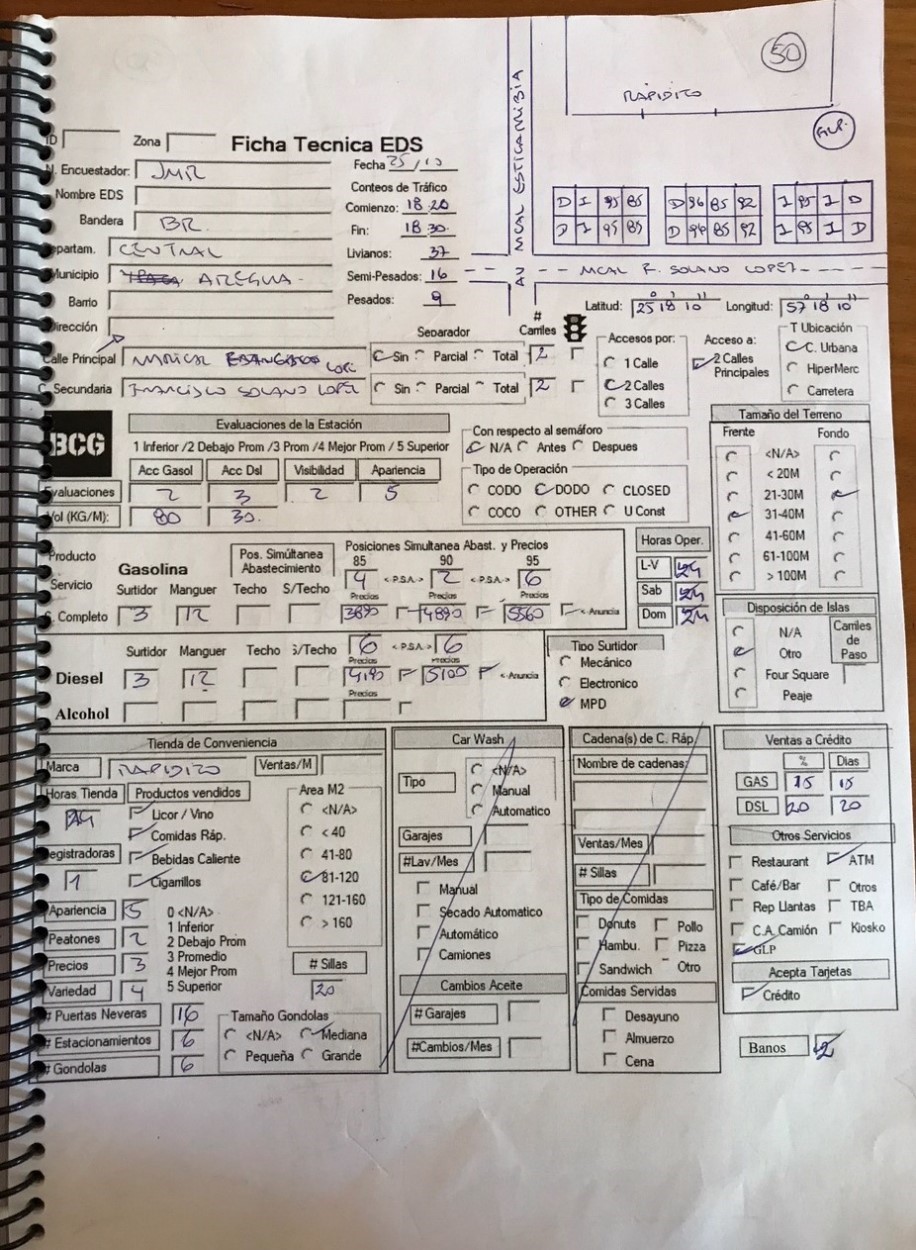 50
RAPIDITO
GLP.
AV MCAL ESTIGARRIBIA
ID
Zona
Ficha Tecnica EDS
Fecha 25/10
N. Encuestador: JMR
Conteos de Tráfico
Nombre EDS
Comienzo: 18 20
Bandera BR.
Fin: 18 30.
Departam. CENTRAL
Livianos: 37
Municipio AREGUA.
Semi-Pesados: 16
Barrio
Pesados: 9
D I 95 85
D I 95 85
D 96 85 92
D 96 85 92
I 95 I D
I 95 I D
MCAL F. SOLANO LOPEZ
Dirección
Latitud: 25 18 10
Longitud: 57 18 10
Separador
# Carriles
Calle Principal MARISCAL
Sin Parcial Total 2
C. Secundaria FRANCISCO SOLANO LOPEZ
Sin Parcial Total 2
Accesos por:
1 Calle
2 Calles
3 Calles
Acceso a:
2 Calles Principales
T Ubicación
C. Urbana
HiperMerc
Carretera
BCG
Evaluaciones de la Estación
1 Inferior /2 Debajo Prom /3 Prom /4 Mejor Prom / 5 Superior
Acc Gasol Acc Dsl Visibilidad Apariencia
Evaluaciones 2 3 2 5
Vol (KG/M): 80 30.
Con respecto al semáforo
N/A Antes Despues
Tipo de Operación
CODO DODO CLOSED
COCO OTHER U Const
Tamaño del Terreno
Frente Fondo
<N/A>
< 20M
21-30M
31-40M
41-60M
61-100M
> 100M
Producto
Servicio
Gasolina
Pos. Simúltanea Abastecimiento
Posiciones Simultanea Abast. y Precios
85 90 95
4 <P.S.A.> 2 <P.S.A.> 6
Surtidor Manguer Techo S/Techo
Precios Precios Precios
S. Completo 3 12 3890 4890 5560 <-Anuncia
Horas Oper.
L-V 24
Sab 24
Dom 24
Surtidor Manguer Techo S/Techo 6 <P.S.A> 6
Precios Precios
Diesel 3 12 4190 5100 <-Anuncia
Precios
Alcohol
Tipo Surtidor
Mecánico
Electronico
MPD
Disposición de Islas
N/A
Otro
Four Square
Peaje
Carriles de Paso
Tienda de Conveniencia
Marca RAPIDITO Ventas/M
Horas Tienda 24
Productos vendidos
Licor / Vino
Comidas Ráp.
Bebidas Caliente
Cigarrillos
Registradoras
1
Area M2
<N/A>
< 40
41-80
81-120
121-160
> 160
Apariencia 5
Peatones 2
Precios 3
Variedad 4
0 <N/A>
1 Inferior
2 Debajo Prom
3 Promedio
4 Mejor Prom
5 Superior
# Sillas
20
# Puertas Neveras 16
# Estacionamientos 6
# Gondolas 6
Tamaño Gondolas
<N/A> Mediana
Pequeña Grande
Car Wash
Tipo
<N/A>
Manual
Automatico
Garajes
#Lav/Mes
Manual
Secado Automatico
Automático
Camiones
Cambios Aceite
# Garajes
#Cambios/Mes
Cadena(s) de C. Ráp.
Nombre de cadenas:
Ventas/Mes
# Sillas
Tipo de Comidas
Donuts Pollo
Hambu. Pizza
Sandwich Otro
Comidas Servidas
Desayuno
Almuerzo
Cena
Ventas a Crédito
% Dias
GAS 15 15
DSL 20 20
Otros Servicios
Restaurant ATM
Café/Bar Otros
Rep Llantas TBA
C.A.Camión Kiosko
GLP
Acepta Tarjetas
Crédito
Banos 2